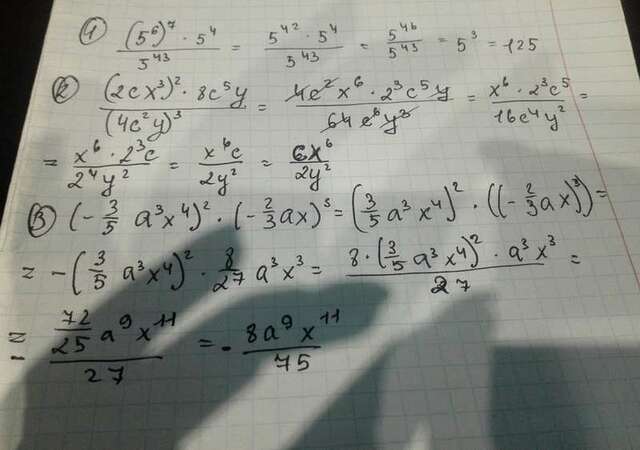 1) (5⁶)⁷ · 5⁴ / 5⁴³ = 5⁴² · 5⁴ / 5⁴³ = 5⁴⁶ / 5⁴³ = 5³ = 125
2) (2cx³)² · 8c⁵y / (4c²y)³ = 4c²x⁶ · 2³c⁵y / 64c⁶y³ = x⁶ · 2³c⁵ / 16c⁴y² =
= x⁶ · 2³c / 2⁴y² = x⁶c / 2y² = cx⁶ / 2y²
3) (-3/5 a³x⁴)² · (-2/3 ax)³ = (3/5 a³x⁴)² · ((-2/3 ax)³) =
= -(3/5 a³x⁴)² · 8/27 a³x³ = 8 · (3/5 a³x⁴)² · a³x³ / 27 =
= 72/25 a⁹x¹¹ / 27 = - 8a⁹x¹¹ / 75